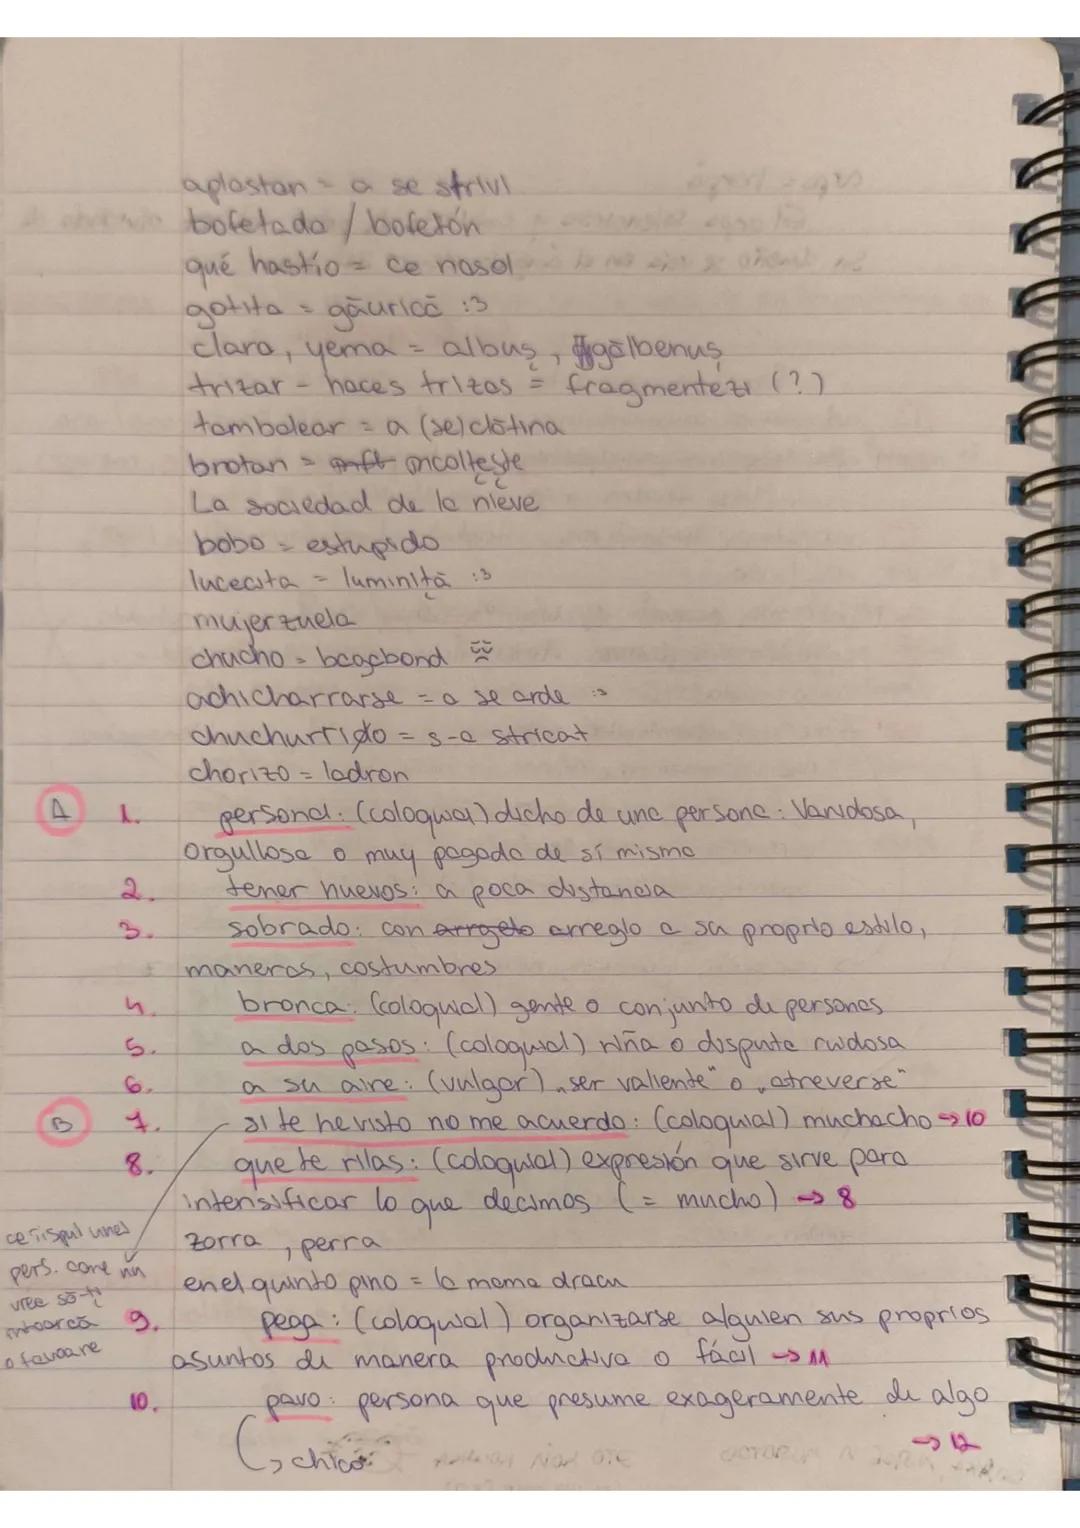 aplastan = a se strivi
bofetada / bofetón
qué hastío = ce nasol
gotita = găurică :3
clara, yema = albuș, gălbenuș
trizar - haces trizas = fragmentezi (?)
tambolear = a (se) clătina
brotan = încolțește
La sociedad de la nieve
bobo = estupido
lucecita = luminiță :3
mujerzuela
chucho = bagabond
achicharrarse = a se arde :3
chuchurrido = s-a stricat
chorizo = ladron
A 1. personal: (coloquial) dicho de una persona: Vanidosa,
Orgullosa o muy pagada de sí misma
2. tener huevos: a poca distancia
3. sobrado: con arrgelo arreglo a su proprio estilo,
maneras, costumbres
4. bronca: (coloquial) gente o conjunto de personas
5. a dos pasos: (coloquial) riña o disputa ruidosa
6. a su aire: (vulgar) „ser valiente" o „atreverse"
B 7. si te he visto no me acuerdo: (coloquial) muchacho → 10
8. que te rilas: (coloquial) expresión que sirve para
intensificar lo que decimos (= mucho) → 8
zorra, perra
en el quinto pino = la mama dracu
ce îi spui unei
pers. care nu
vrea să-ți
întoarcă
o favoare
9. pega: (coloquial) organizarse alguien sus proprios
asuntos de manera productiva o fácil → 11
10. pavo: persona que presume exageramente de algo
→ 12
↳ chico